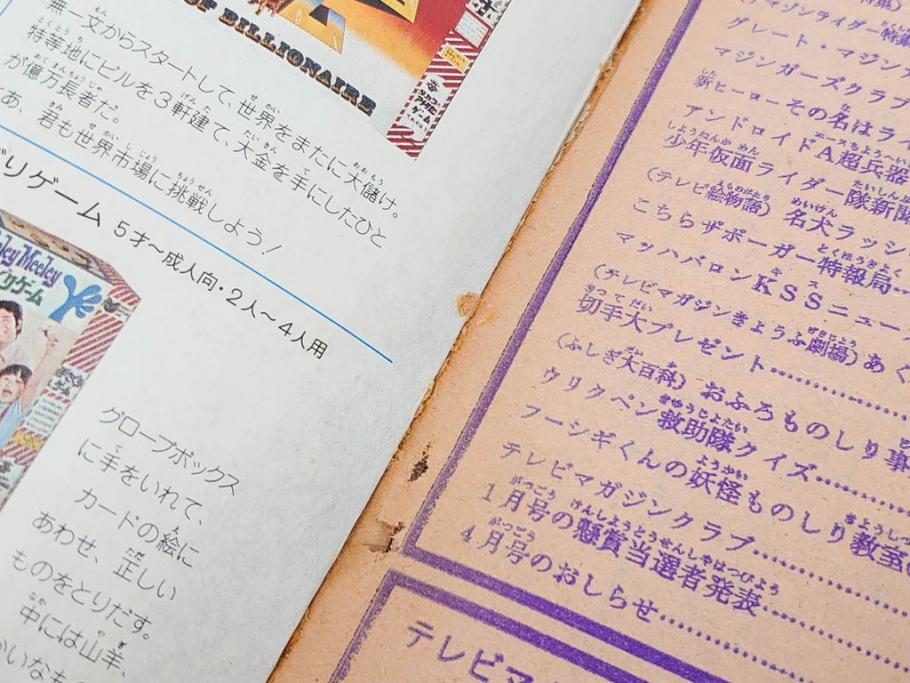 OF BILLIONAIRE
無一文からスタートして、世界をまたに大儲け。
特等地にビルを3軒建て、大金を手にしたひと
が億万長者だ。
君も世界市場に挑戦しよう!
リゲーム 5才〜成人向・2人〜4人用
Meeley
ゲーム
グローブボックス
に手をいれて、
カードの絵に
あわせ、正しい
ものをとりだす。
中には山羊、
いなもの
マゾンライダー特集
グレート・マジンガ
マジンガーズクラブ
新ヒーローその名はラ
アンドロイドA超兵器
少年仮面ライダー隊新聞
(テレビ絵物語)名犬ラッシ
こちらザボーガー特報局…
マッハバロンKSSニュー
(テレビマガジンきょうふ劇場)あく
切手大プレゼント………
(ふしぎ大百科)おふろものしり事
ウリクペン救助隊クイズ………
フーシギくんの妖怪ものしり教室
テレビマガジンクラブ………
1月号の懸賞当選者発表………
4月号のおしらせ………
テレビマ